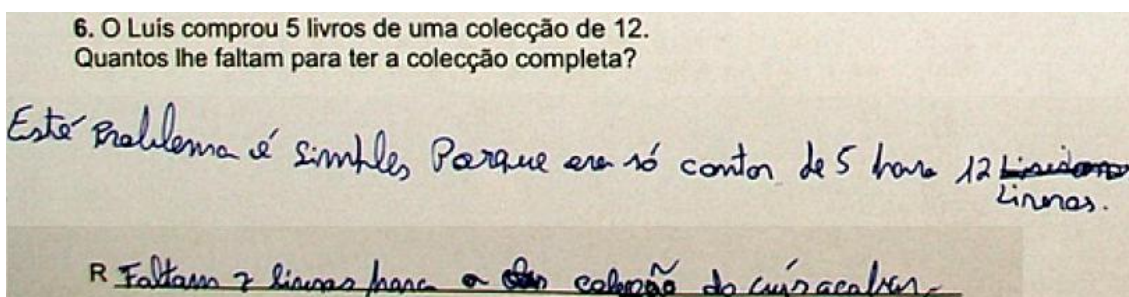 6. O Luís comprou 5 livros de uma colecção de 12.
Quantos lhe faltam para ter a colecção completa?
Esté Problema é simples Porque era só contar de 5 para 12
Livros.
R Faltam 7 livros para a coleção do Luís acabar.